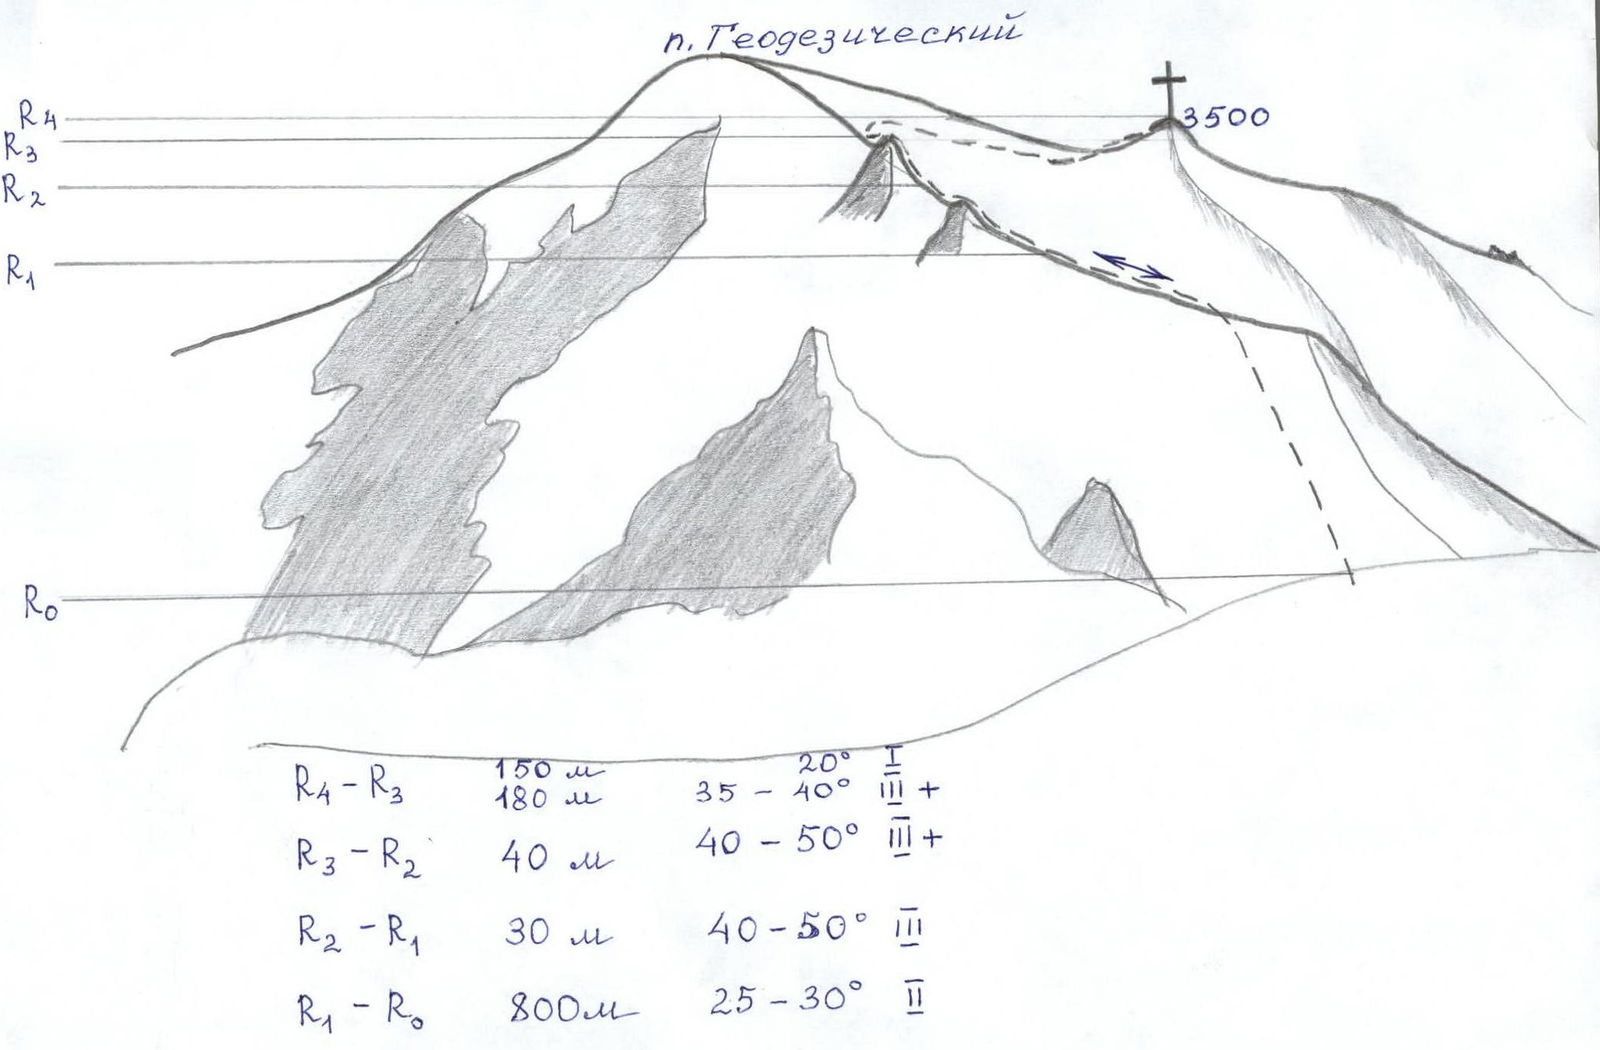 п. Геодезический
3500
R4
R3
R2
R1
R0
R4 – R3 150 м 20° I
180 м 35 – 40° III +
R3 – R2 40 м 40 – 50° III +
R2 – R1 30 м 40 – 50° III
R1 – R0 800 м 25 – 30° II